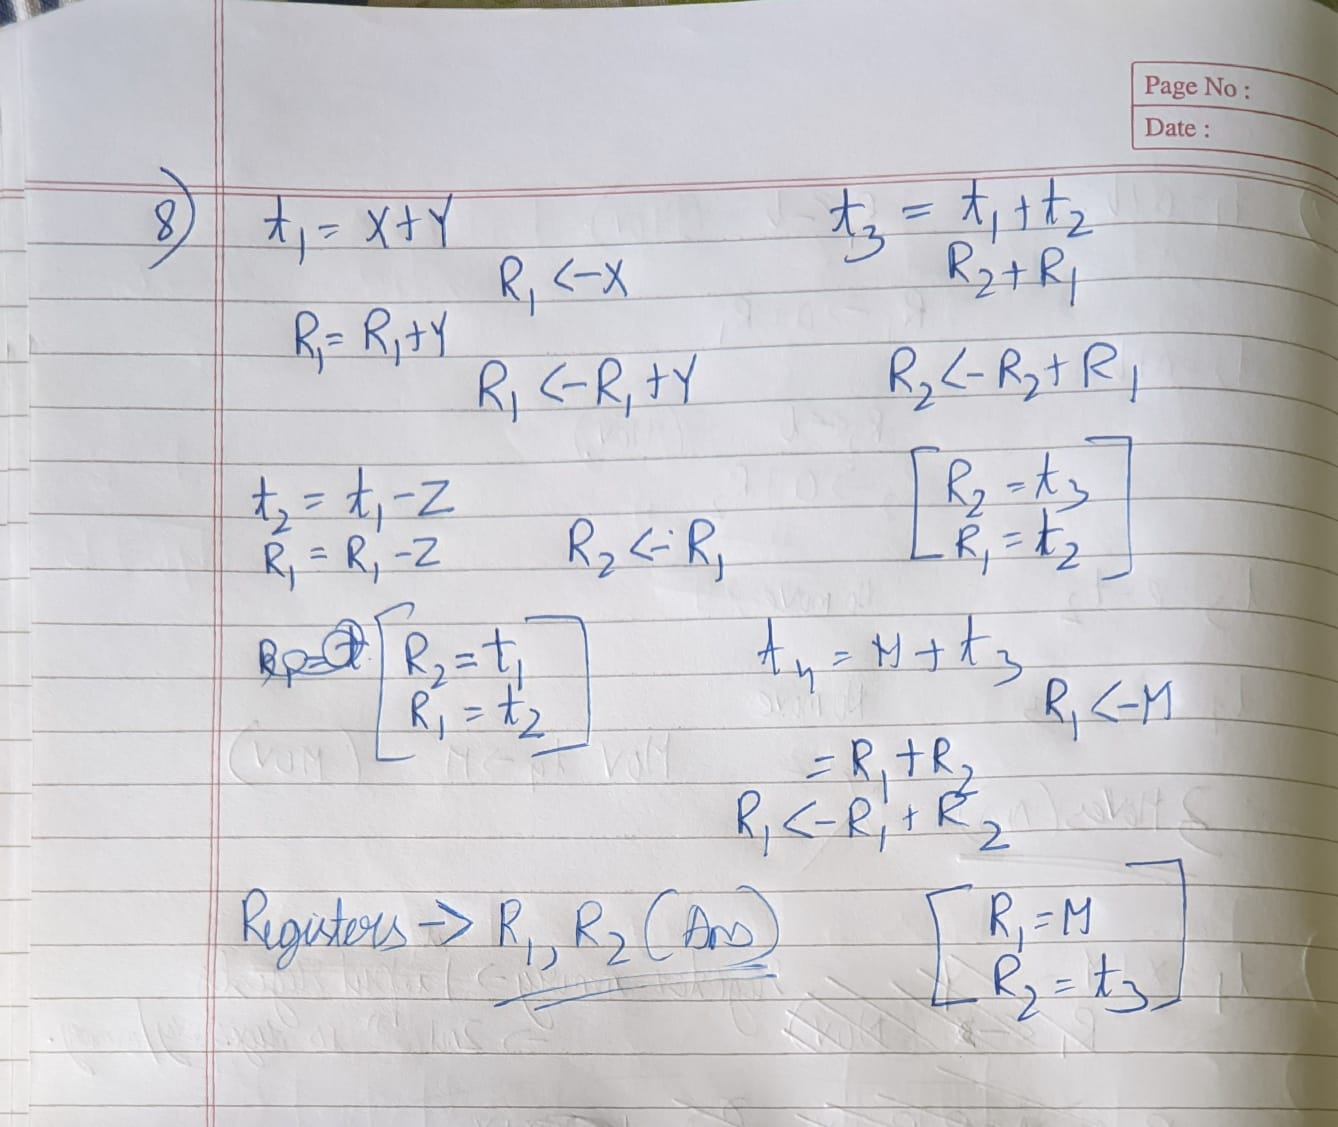 Page No :
Date :
8)
t₁ = X+Y
R₁ <- X
R₁ = R₁+Y
R₁ <- R₁ + Y
t₂ = t₁ - Z
R₁ = R₁ - Z
R₂ <- R₁
R₂ = t₁
R₁ = t₂
t₃ = t₁ + t₂
R₂ + R₁
R₂ <- R₂ + R₁
R₂ = t₃
R₁ = t₂
t₄ = M + t₃
R₁ <- M
= R₁ + R₂
R₁ <- R₁ + R₂
R₁ = M
R₂ = t₃
Registers -> R₁, R₂ (Ans)